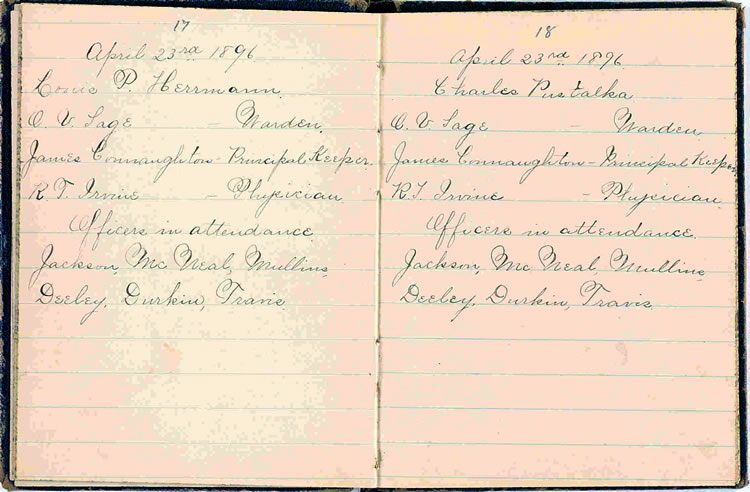 17
April 23rd 1896
Louis P. Herrmann.
O. V. Sage – Warden.
James Connaughton – Principal Keeper.
R. T. Irvine – Physician
Officers in attendance.
Jackson, Mc Neal, Mullins,
Deeley, Durkin, Travis
18
April 23rd 1896.
Charles Pustalka
O. V. Sage – Warden
James Connaughton – Principal Keeper
R. T. Irvine – Physician.
Officers in attendance.
Jackson, Mc Neal, Mullins,
Deeley, Durkin, Travis.